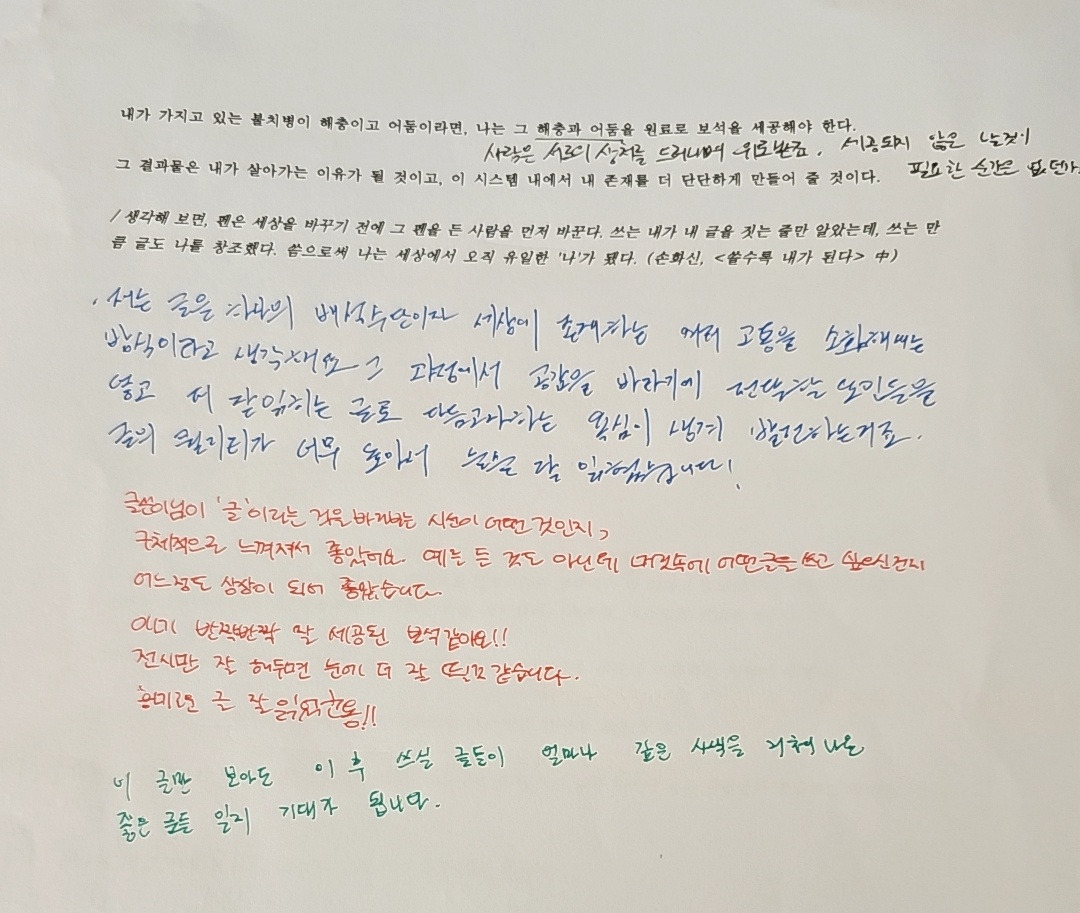 내가 가지고 있는 불치병이 해충이고 어둠이라면, 나는 그 해충과 어둠을 원료로 보석을 세공해야 한다.
사람은 서로의 상처를 드러내며 위로받죠. 세공되지 않은 날것이
그 결과물은 내가 살아가는 이유가 될 것이고, 이 시스템 내에서 내 존재를 더 단단하게 만들어 줄 것이다.
필요한 순간은 없던가
/ 생각해 보면, 펜은 세상을 바꾸기 전에 그 펜을 든 사람을 먼저 바꾼다. 쓰는 내가 내 글을 짓는 줄만 알았는데, 쓰는 만
큼 글도 나를 창조했다. 씀으로써 나는 세상에서 오직 유일한 '나'가 됐다. (손화신, <쓸수록 내가 된다> 中)
저는 글은 하나의 배설수단이자 세상에 존재하는 여러 고통을 소화해내는
방식이라고 생각해요 그 과정에서 공감을 바라기에 전달할
넣고 더 잘 읽히는 글로 다듬고자하는 욕심이 생겨 발전하는거죠.
글의 퀄리티가 너무 높아서 눈물 잘 읽혔습니다!
글쓴이님이 '글'이라는 것을 바라보는 시선이 어떤 것인지,
구체적으로 느껴져서 좋았어요. 예를 든 것도 아닌데 머릿속에 어떤 글을 쓰고 싶으신건지
어느정도 상상이 되어 좋았습니다.
이미 반짝반짝 잘 세공된 보석같아요!!
전시만 잘 해두면 눈에 더 잘 띌것 같습니다.
흥미로운 글 잘 읽었음!!
이 글만 보아도 이후 쓰실 글들이 얼마나 깊은 사색을 거쳐 나온
좋은 글들일지 기대가 됩니다.